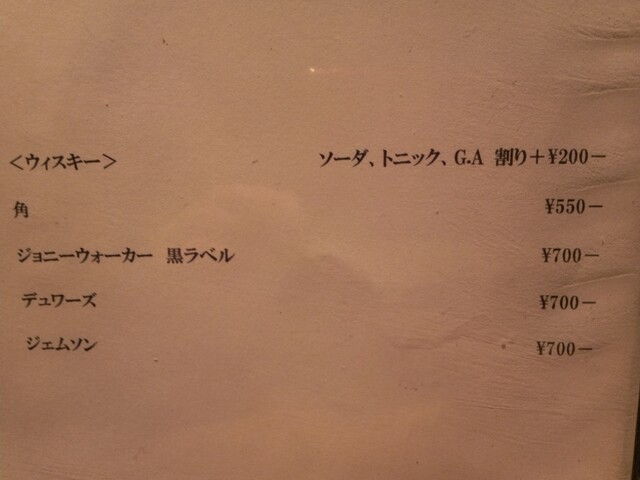 ＜ウィスキー＞ ソーダ、トニック、G.A 割り＋¥200－
角 ¥550－
ジョニーウォーカー 黒ラベル ¥700－
デュワーズ ¥700－
ジェムソン ¥700－